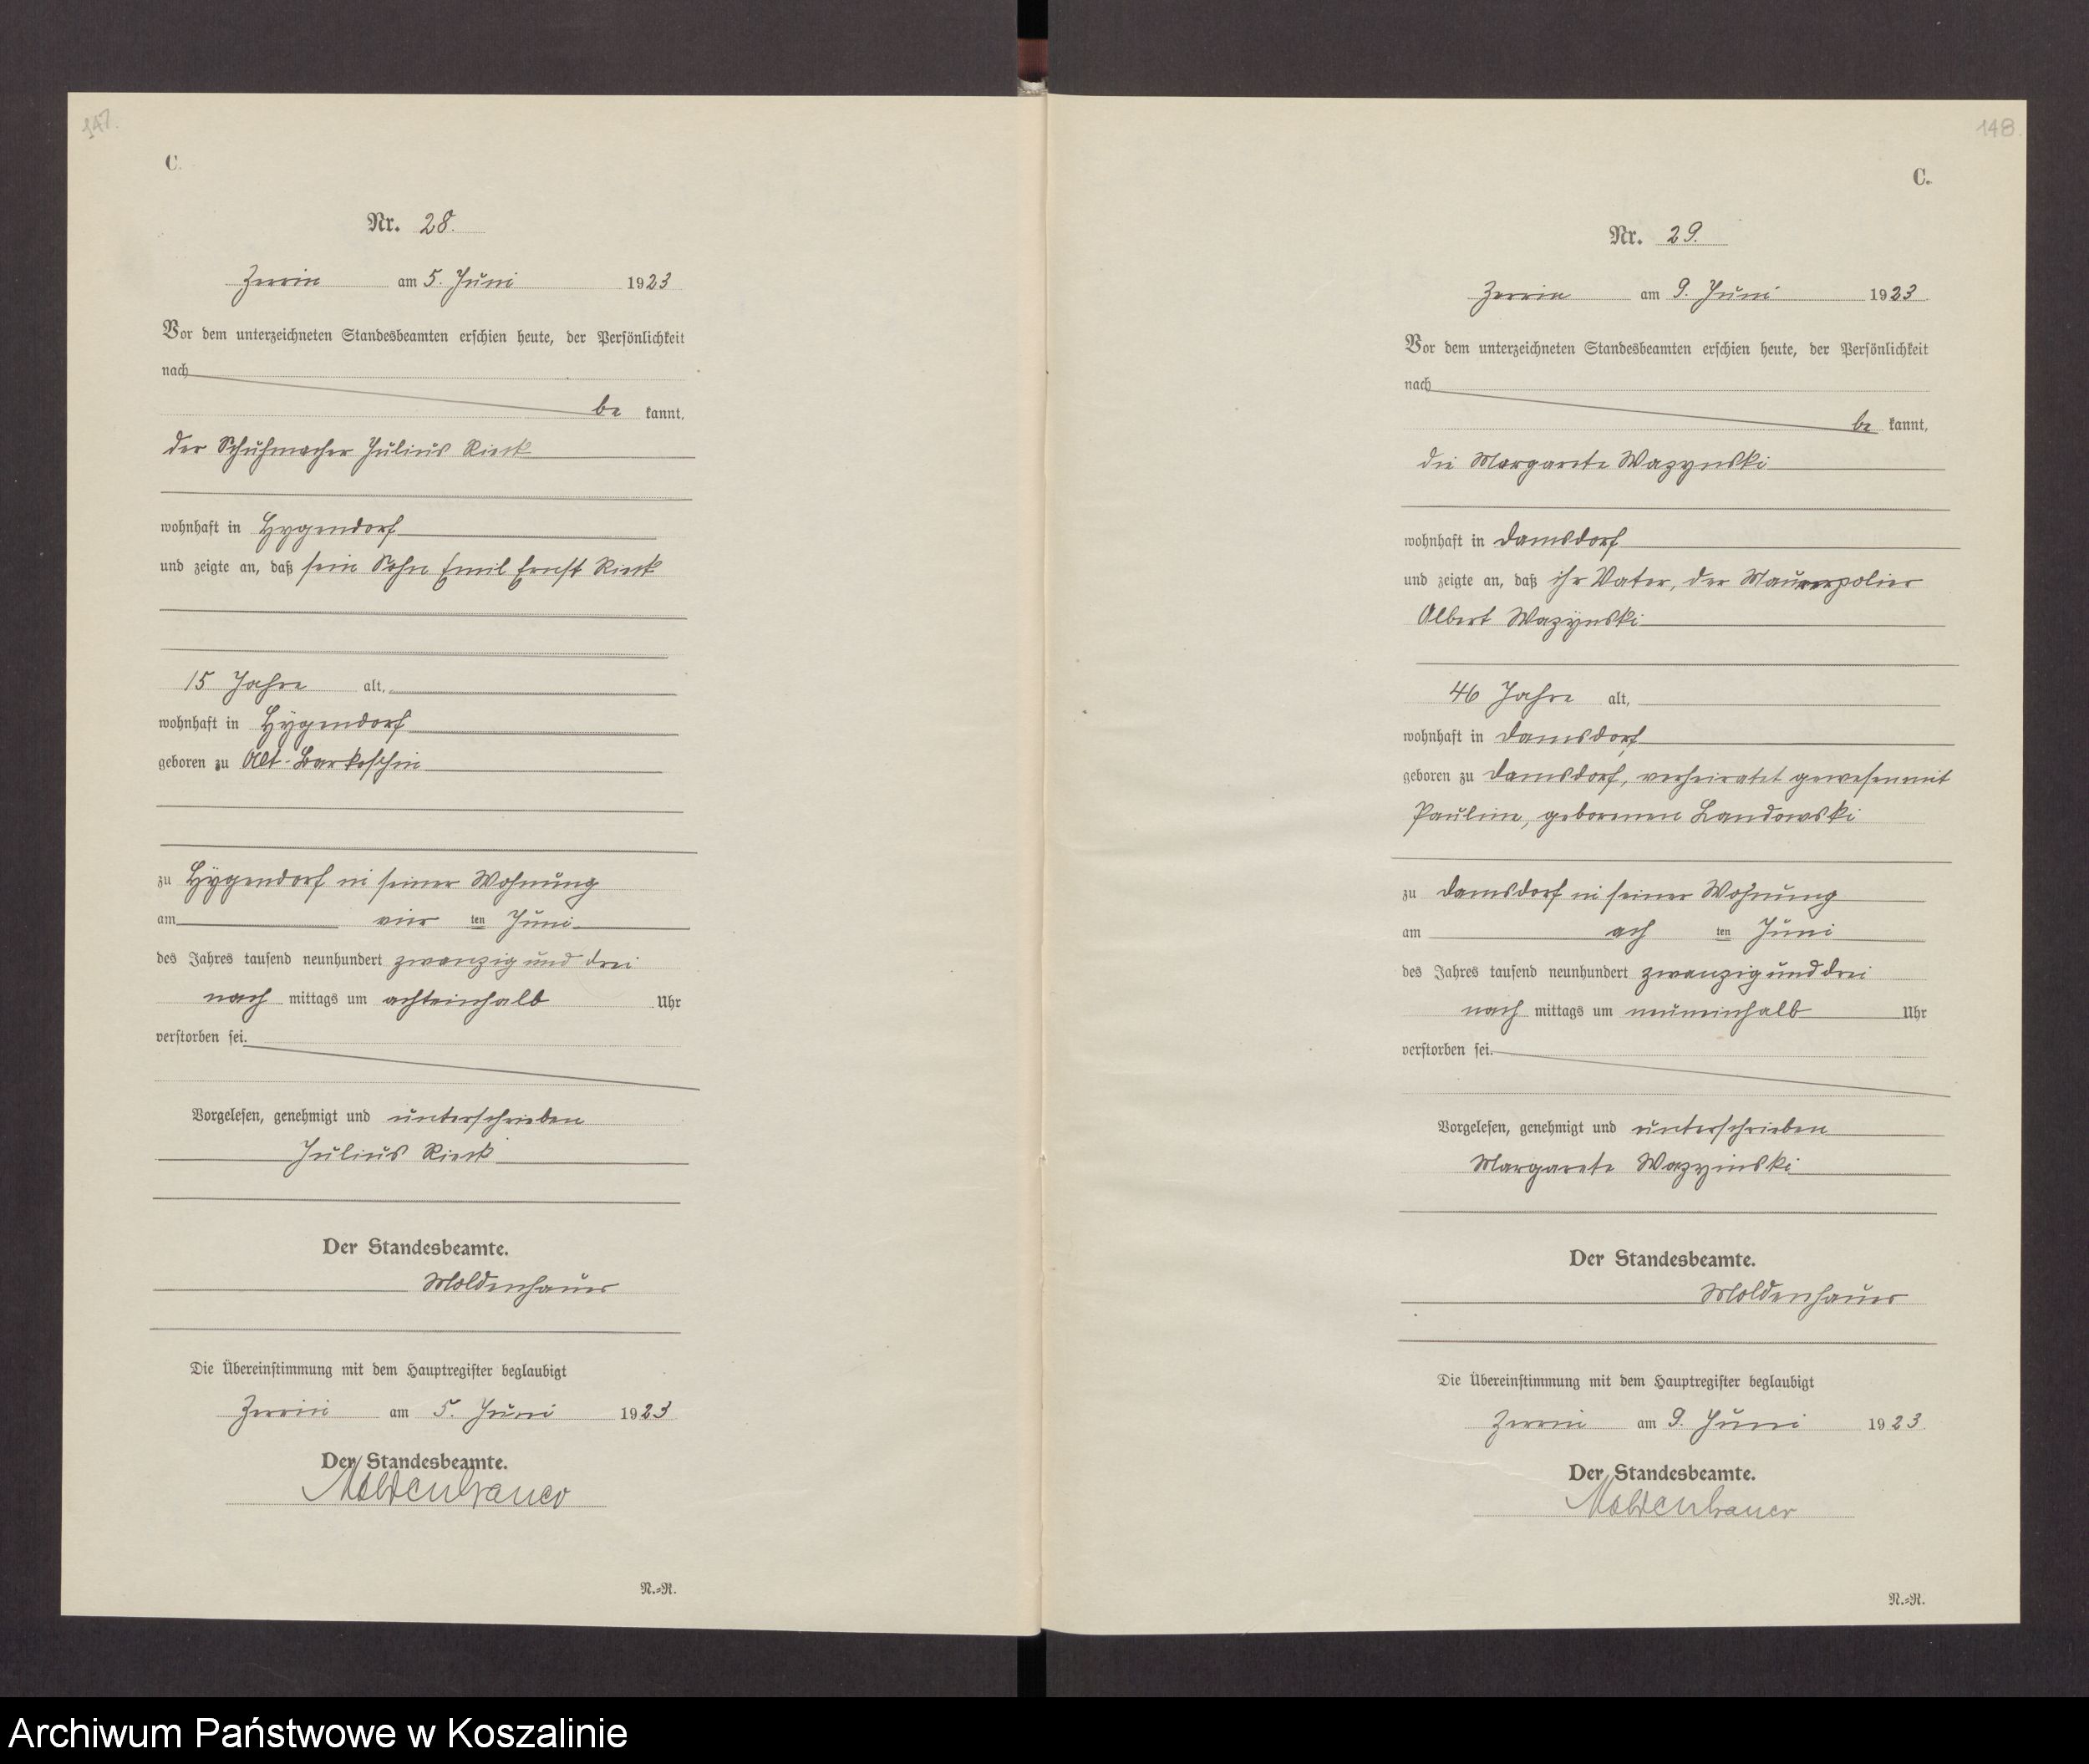 147.
C.
Nr. 28.
Zerrin am 5. Juni 1923
Vor dem unterzeichneten Standesbeamten erschien heute, der Persönlichkeit
nach
be kannt,
der Schuhmacher Julius Rieck
wohnhaft in Hygendorf
und zeigte an, daß sein Sohn Emil Ernst Rieck
15 Jahre alt,
wohnhaft in Hygendorf
geboren zu Alt-Barkoschin
zu Hygendorf in seiner Wohnung
am vier ten Juni
des Jahres tausend neunhundert zwanzig und drei
nach mittags um achteinhalb Uhr
verstorben sei.
Vorgelesen, genehmigt und unterschrieben
Julius Rieck
Der Standesbeamte.
Moldenhauer
Die Übereinstimmung mit dem Hauptregister beglaubigt
Zerrin am 5. Juni 1923
Der Standesbeamte.
Moldenhauer
N.=R.
148.
C.
Nr. 29.
Zerrin am 9. Juni 1923
Vor dem unterzeichneten Standesbeamten erschien heute, der Persönlichkeit
nach
be kannt,
die Margarete Wazynski
wohnhaft in Damsdorf
und zeigte an, daß ihr Vater, der Maurerpolier
Albert Wazynski
46 Jahre alt,
wohnhaft in Damsdorf
geboren zu Damsdorf, verheiratet gewesen mit
Pauline, geborenen Landowski
zu Damsdorf in seiner Wohnung
am ach ten Juni
des Jahres tausend neunhundert zwanzig und drei
nach mittags um neuneinhalb Uhr
verstorben sei.
Vorgelesen, genehmigt und unterschrieben
Margarete Wazyinski
Der Standesbeamte.
Moldenhauer
Die Übereinstimmung mit dem Hauptregister beglaubigt
Zerrin am 9. Juni 1923
Der Standesbeamte.
Moldenhauer
N.=R.
Archiwum Państwowe w Koszalinie